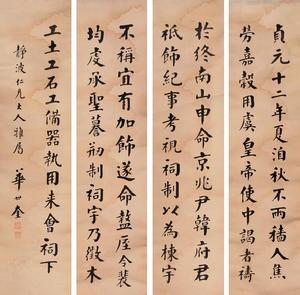 貞元十二年夏洎秋不雨穡人焦
勞嘉穀用虞皇帝使中謁者禱
於終南山申命京兆尹韓府君
祗飾紀事考視祠制以為棟宇
不稱宜有加飾遂命盩厔令裴
均虔承聖謩剏制祠宇乃徵木
工土工石工備器執用来會祠下
靜波仁兄大人雅屬
華世奎